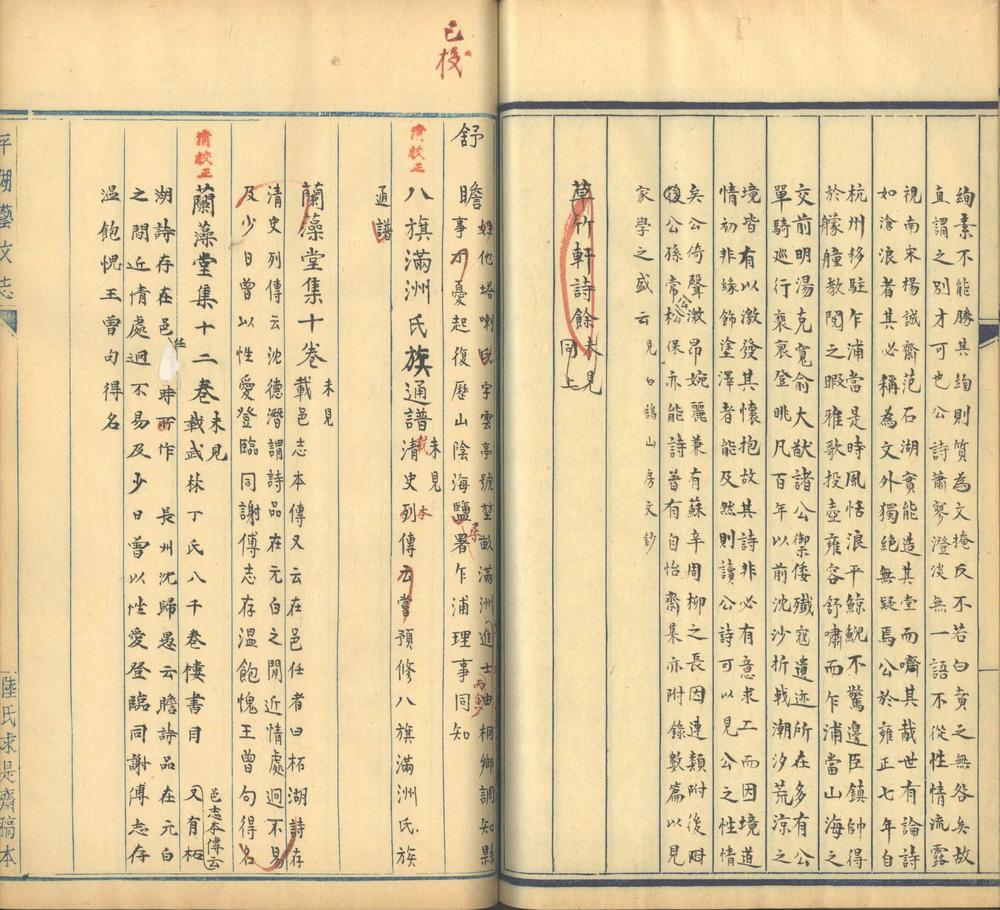 絢素不能勝其絢則質為文掩反不若白賁之無咎矣故
直謂之別才可也公詩蕭寥澄淡無一語不從性情流露
視南宋楊誠齋范石湖實能造其堂而嚌其胾世有論詩
如滄浪者其必稱為文外獨絕無疑焉公於雍正七年自
杭州移駐乍浦當是時風恬浪平鯨鯢不驚邊臣鎮帥得
於艨艟教閱之暇雅歌投壺雍容舒嘯而乍浦當山海之
交前明湯克寬俞大猷諸公禦倭殲寇遺迹所在多有公
單騎巡行裒裒登眺凡百年以前沈沙折戟潮汐荒涼之
境皆有以激發其懷抱故其詩非必有意求工而因境道
情初非緣飾塗澤者能及然則讀公詩可以見公之性情
矣公倚聲激昂婉麗兼有蘇辛周柳之長因連類附後附
後公孫常公松保亦能詩著有自怡齋集亦附錄數篇以見
家學之盛云 見白鵠山房文鈔
草竹軒詩餘 未見 同上
已校
舒
瞻 姓他塔喇氏字雲亭號堃畝滿洲進士由桐鄉調知縣
丙寅
瞻事 憂起復歷山陰海鹽署乍浦理事同知
清校正
八旗滿洲氏族通譜 未見 清史列傳云嘗預修八旗滿洲氏族
通譜
蘭藻堂集十卷 未見 載邑志本傳又云在邑任者曰柘湖詩存
清史列傳云沈德潛謂詩品在元白之閒近情處迥不易
及少日曾以性愛登臨同謝傅志存溫飽愧王曾句得名
清校正
蘭藻堂集十二卷 未見 載武林丁氏八千卷樓書目 又有柘
邑志本傳云
湖詩存在邑任時所作 長州沈歸愚云瞻詩品在元白
之閒近情處迥不易及少日曾以性愛登臨同謝傅志存
溫飽愧王曾句得名
平湖藝文志
陸氏求是齋稿本